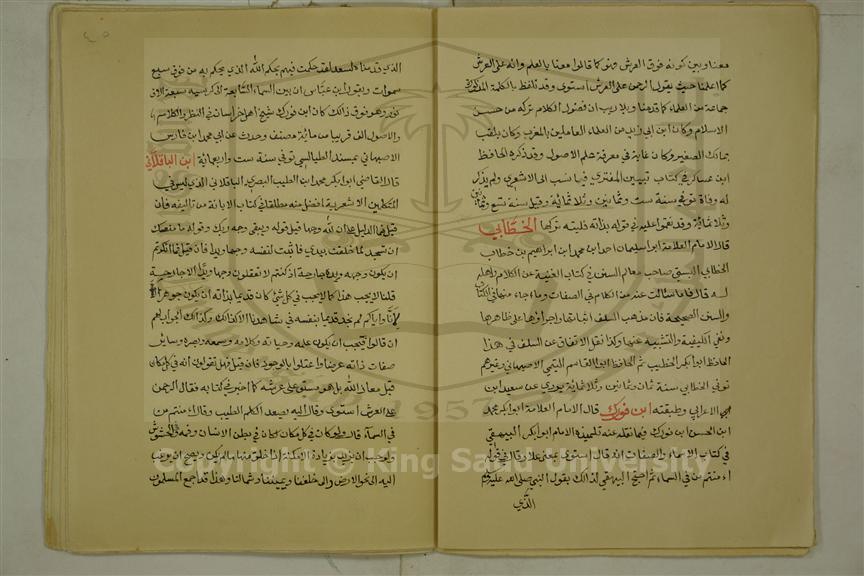 معنا وبين كونه فوق العرش فهو كما قالوا معنا بالعلم وانه على العرش
كما اعلمنا حيث يقول الرحمن على العرش استوى وقد تلفظ بالكلمة المذكورة
جماعة من العلماء كما قدمنا وبلا ريب ان فضول الكلام تركه من حسن
الاسلام وكان ابن ابي زيد من العلماء العاملين بالمغرب وكان يلقب
بمالك الصغير وكان غاية في معرفة علم الاصول وقد ذكره الحافظ
ابن عساكر في كتاب تبيين المفتري فيما نسب الى الاشعري ولم يذكر
له وفاة توفي سنة ست وثمانين وثلاثمائة وقيل سنة تسع وثمانين
وثلاثمائة وقد نقموا عليه في قوله بذاته فليته تركها الخطابي
قال الامام العلامة ابو سليمان احمد ابن محمد ابن ابراهيم بن خطاب
الخطابي البستي صاحب معالم السنن في كتاب الغنية عن الكلام واهله
له قال فاما ما سالت عنه من الكلام في الصفات وما جاء منها في الكتاب
والسنن الصحيحة فان مذهب السلف اثباتها واجراؤها على ظاهرها
ونفي الكيفية والتشبيه عنها وكذا نقل الاتفاق عن السلف في هذا
الحافظ ابو ابكر الخطيب ثم الحافظ ابو القاسم التيمي الاصبهاني وغيرهم
توفي الخطابي سنة ثمان وثمانين وثلاثمائة يروي عن سعيد ابن
الاعرابي وطبقته ابن فورك قال الامام العلامة ابو ابكر محمد
ابن الحسن ابن فورك فيما نقله عنه تلميذه الامام ابو ابكر البيهقي
في كتاب الاسماء والصفات انه قال استوى بمعنى علا وقال في قوله
اء منتم من في السماء ثم احتج البيهقي في ذالك بقول النبي صلى الله عليه وسلم
الذي
الذي قدمناه لسعد لقد حكمت فيهم بحكم الله الذي يحكم به من فوق سبع
سموات وبقول ابن عباس ان بين السماء السابعة الى كرسيه سبعة الاف
نور وهو فوق ذالك كان ابن فورك شيخ اهل خراسان في النظر والكلام
والاصول الف قريبا من مائة مصنف وحدث عن ابي محمد ابن فارس
الاصبهاني بمسند الطيالسي توفي سنة ست واربعمائة ابن الباقلاني
قال القاضي ابو ابكر محمد ابن الطيب البصري الباقلاني الذي ليس في
المتكلمين الاشعرية افضل منه مطلقا في كتاب الابانة من تاليفه فان
قيل فما الدليل على ان لله وجها قيل قوله ويبقى وجه ربك وقوله ما منعك
ان تسجد لما خلقت بيدي فاثبت لنفسه وجها ويدا فان قيل فما انكرتم
ان يكون وجهه ويده جارحة اذ كنتم لا تعقلون وجها ويدا الا جارحة
قلنا لا يجب هذا كما لا يجب في كل شي كان قديما بذاته ان يكون جوهرا
لانا واياكم لم نجد قديما بنفسه في شاهدنا الا كذالك وكذالك الجواب لهم
ان قالوا فيجب ان يكون علمه وحياته وكلامه وسمعه وبصره وساير
صفات ذاته عرضا واعتلوا بالوجود فان قيل فهل تقولون انه في كل مكان
قيل معاذ الله بل هو مستو على عرشه كما اخبر في كتابه فقال الرحمن
على العرش استوى وقال اليه يصعد الكلم الطيب وقال اء منتم من
في السماء قال ولو كان في كل مكان لكان في بطن الانسان وفمه والحشوش
ولوجب ان يزيد بزيادة الامكنة اذا خلق منها ما لم يكن ويصح ان يرغب
اليه الى نحو الارض والى خلفنا ويميننا وشمالنا وهذا قد اجمع المسلمون
Copyright © King Saud University
1957